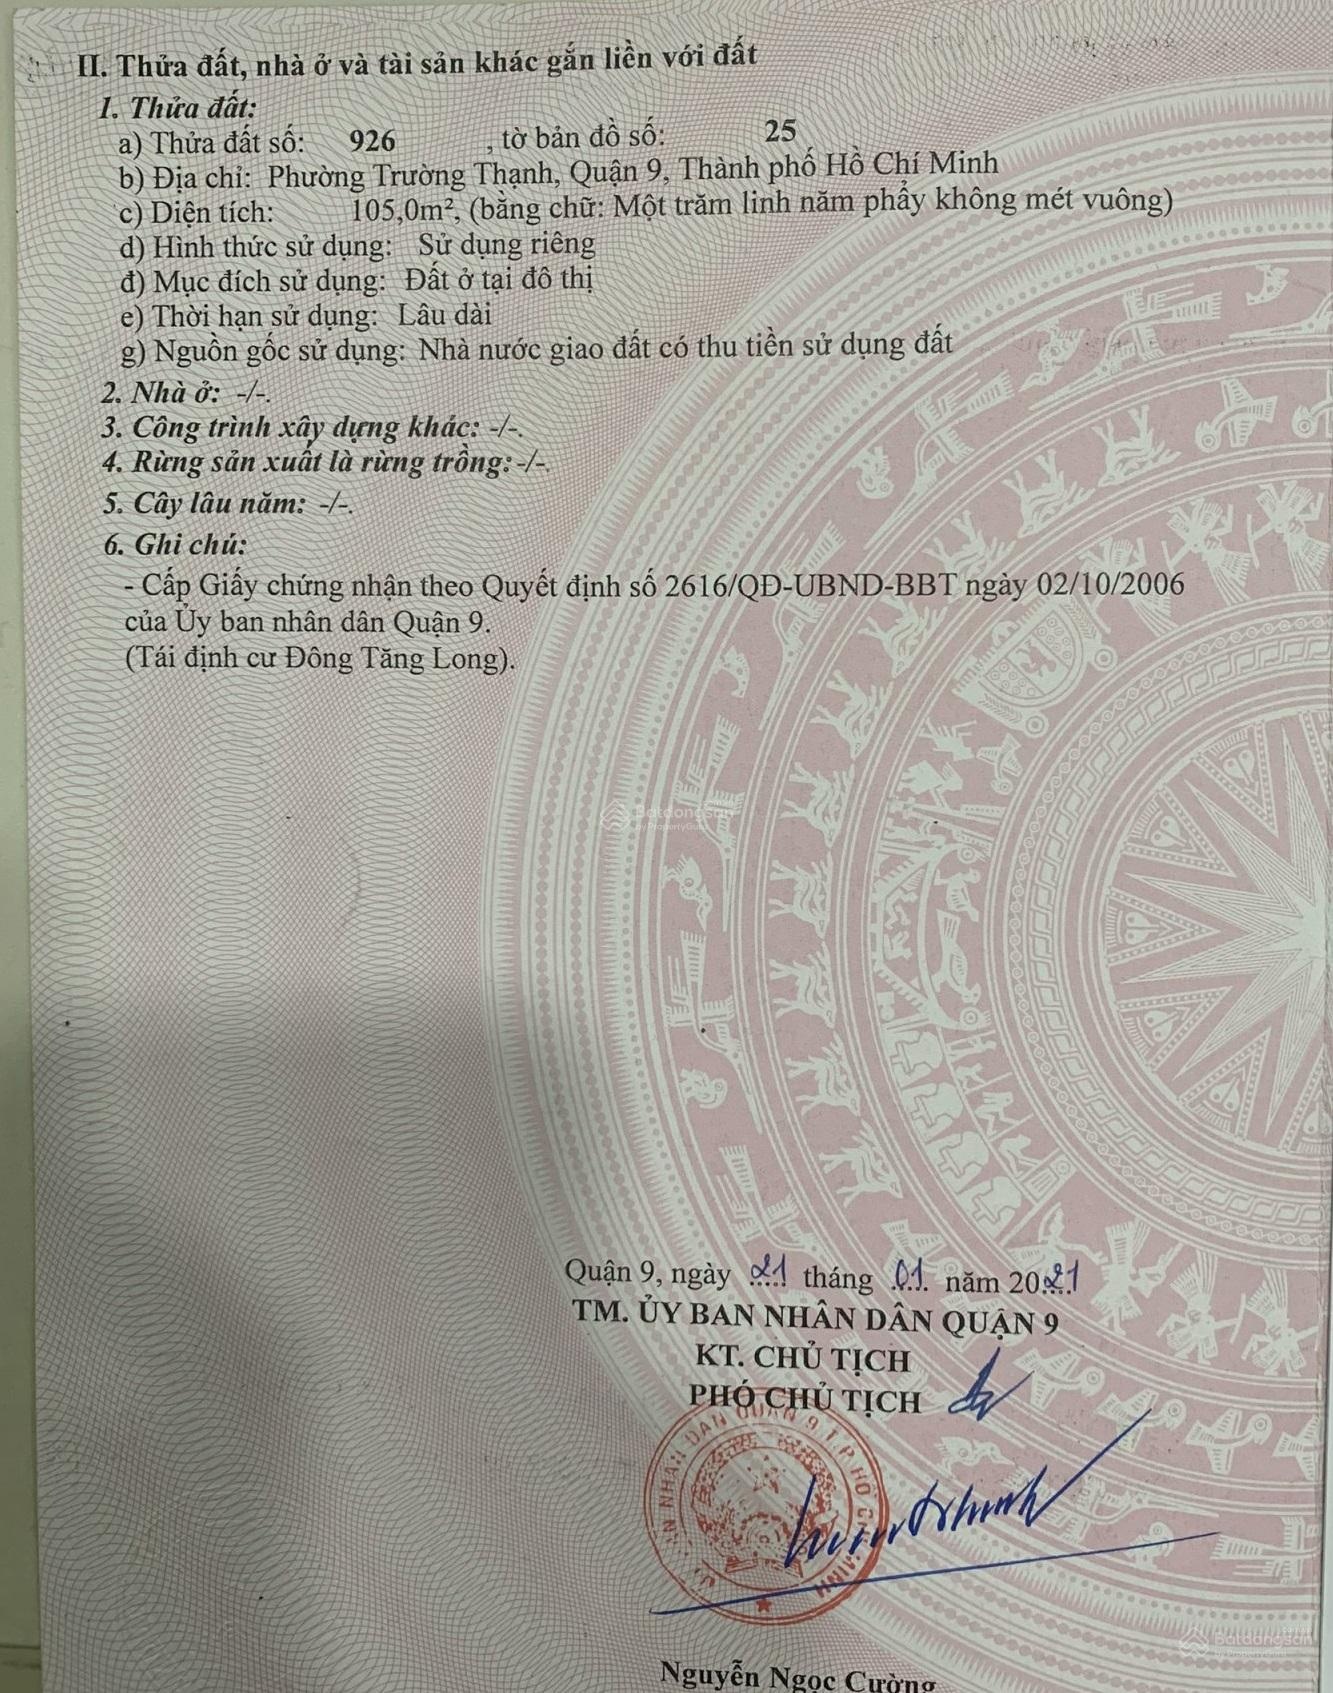 II. Thửa đất, nhà ở và tài sản khác gắn liền với đất
1. Thửa đất:
a) Thửa đất số: 926 , tờ bản đồ số: 25
b) Địa chỉ: Phường Trường Thạnh, Quận 9, Thành phố Hồ Chí Minh
c) Diện tích: 105,0m², (bằng chữ: Một trăm linh năm phẩy không mét vuông)
d) Hình thức sử dụng: Sử dụng riêng
đ) Mục đích sử dụng: Đất ở tại đô thị
e) Thời hạn sử dụng: Lâu dài
g) Nguồn gốc sử dụng: Nhà nước giao đất có thu tiền sử dụng đất
2. Nhà ở: -/-.
3. Công trình xây dựng khác: -/-.
4. Rừng sản xuất là rừng trồng: -/-.
5. Cây lâu năm: -/-.
6. Ghi chú:
- Cấp Giấy chứng nhận theo Quyết định số 2616/QĐ-UBND-BBT ngày 02/10/2006
của Ủy ban nhân dân Quận 9.
(Tái định cư Đông Tăng Long).
Batdongsan
by PropertyGuru
Quận 9, ngày 21 tháng 01 năm 2021
TM. ỦY BAN NHÂN DÂN QUẬN 9
KT. CHỦ TỊCH
PHÓ CHỦ TỊCH
NHÂN DÂN QUẬN 9 T.P HỒ CHÍ MINH
Batdongsan
by PropertyGuru
Nguyễn Ngọc Cường